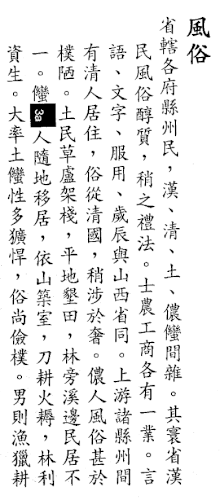 風俗
省轄各府縣州民，漢、清、土、儂蠻間雜。其寰省漢
民風俗醇質，稍之禮法。士農工商各有一業。言
語、文字、服用、歲辰與山西省同。上游諸縣州間
有清人居住，俗從清國，稍涉於奢。儂人風俗甚於
樸陋。土民草廬架棧，平地墾田，林旁溪邊民居不
一。蠻3a人隨地移居，依山築室，刀耕火耨，林利
資生。大率土蠻性多獷悍，俗尚儉樸。男則漁獵耕